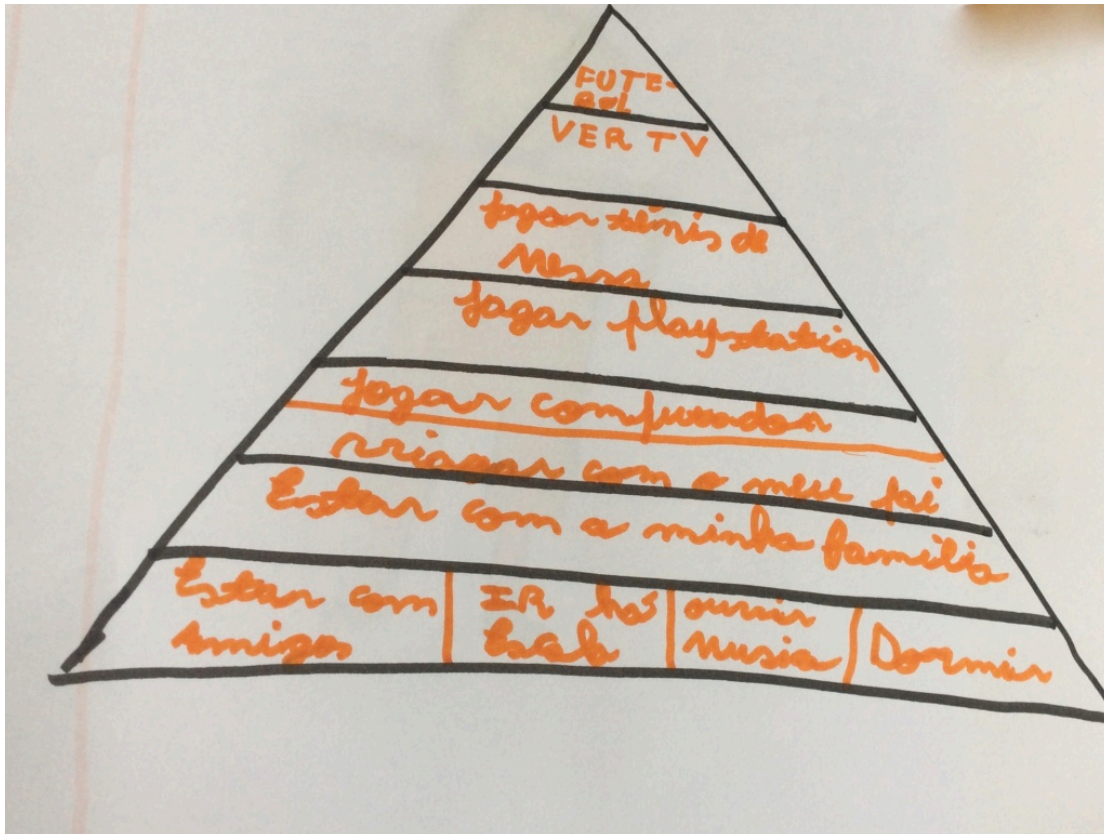 FUTE-
BOL
VER TV
Jogar ténis de
Messa
Jogar playstation
Jogar computador
viajar com o meu pai
Estar com a minha família
Estar com
Amigos
IR há
Escola
ouvir
Musica
Dormir